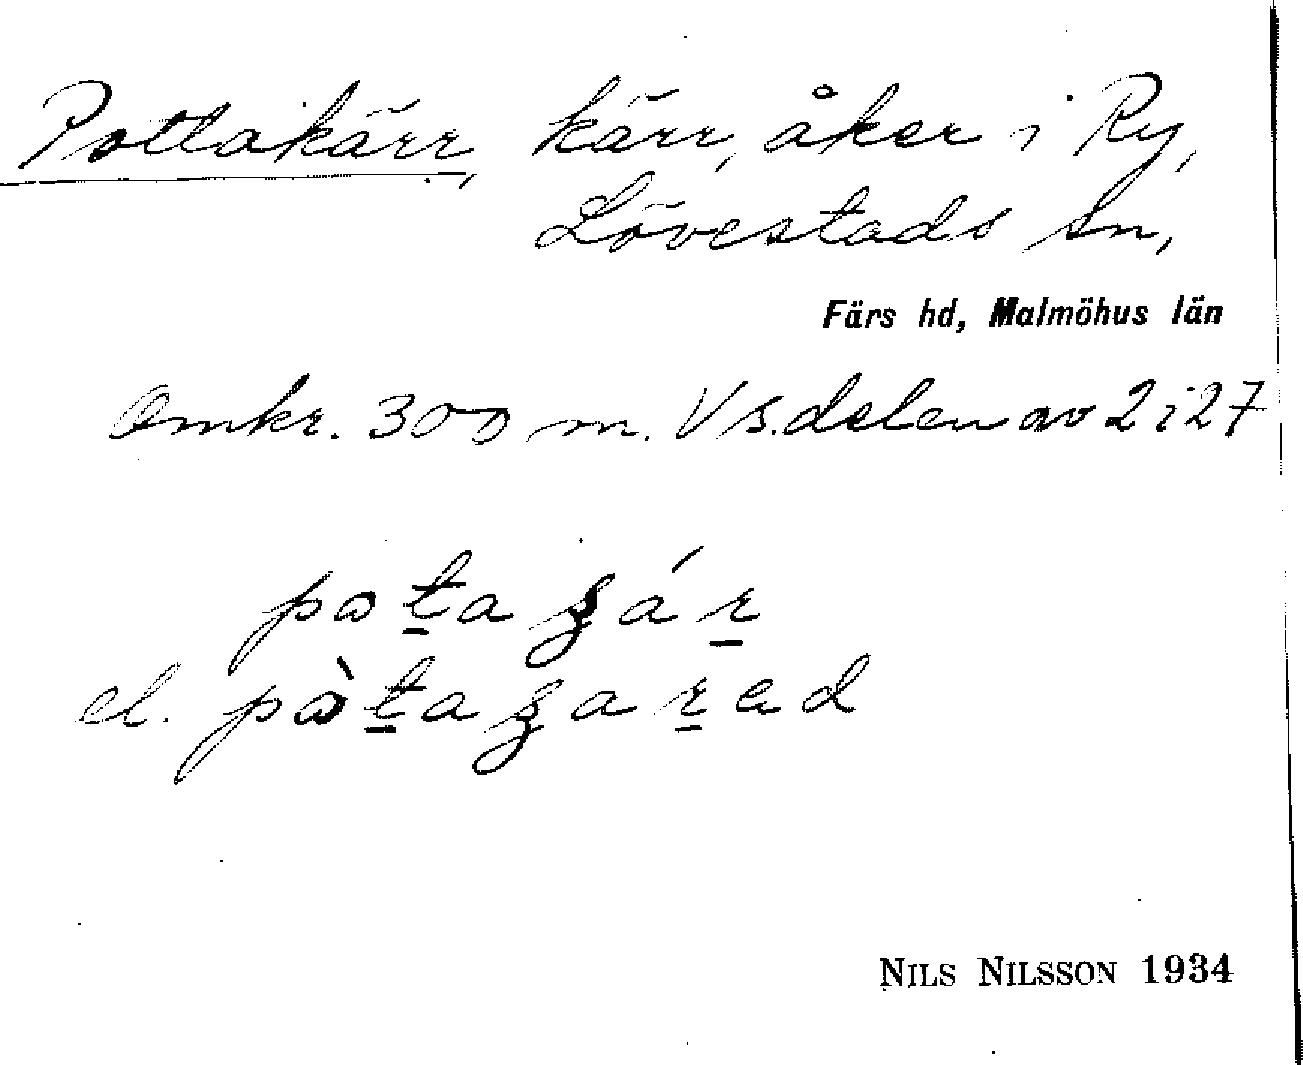 Pottakärr, kärr, åker i Ry,
Lövestads sn,
Färs hd, Malmöhus län
Omkr. 300 m. V s. delen av 2 i 27
pat̲aʒár̲
el. pàt̲aʒar̲ad
NILS NILSSON 1934